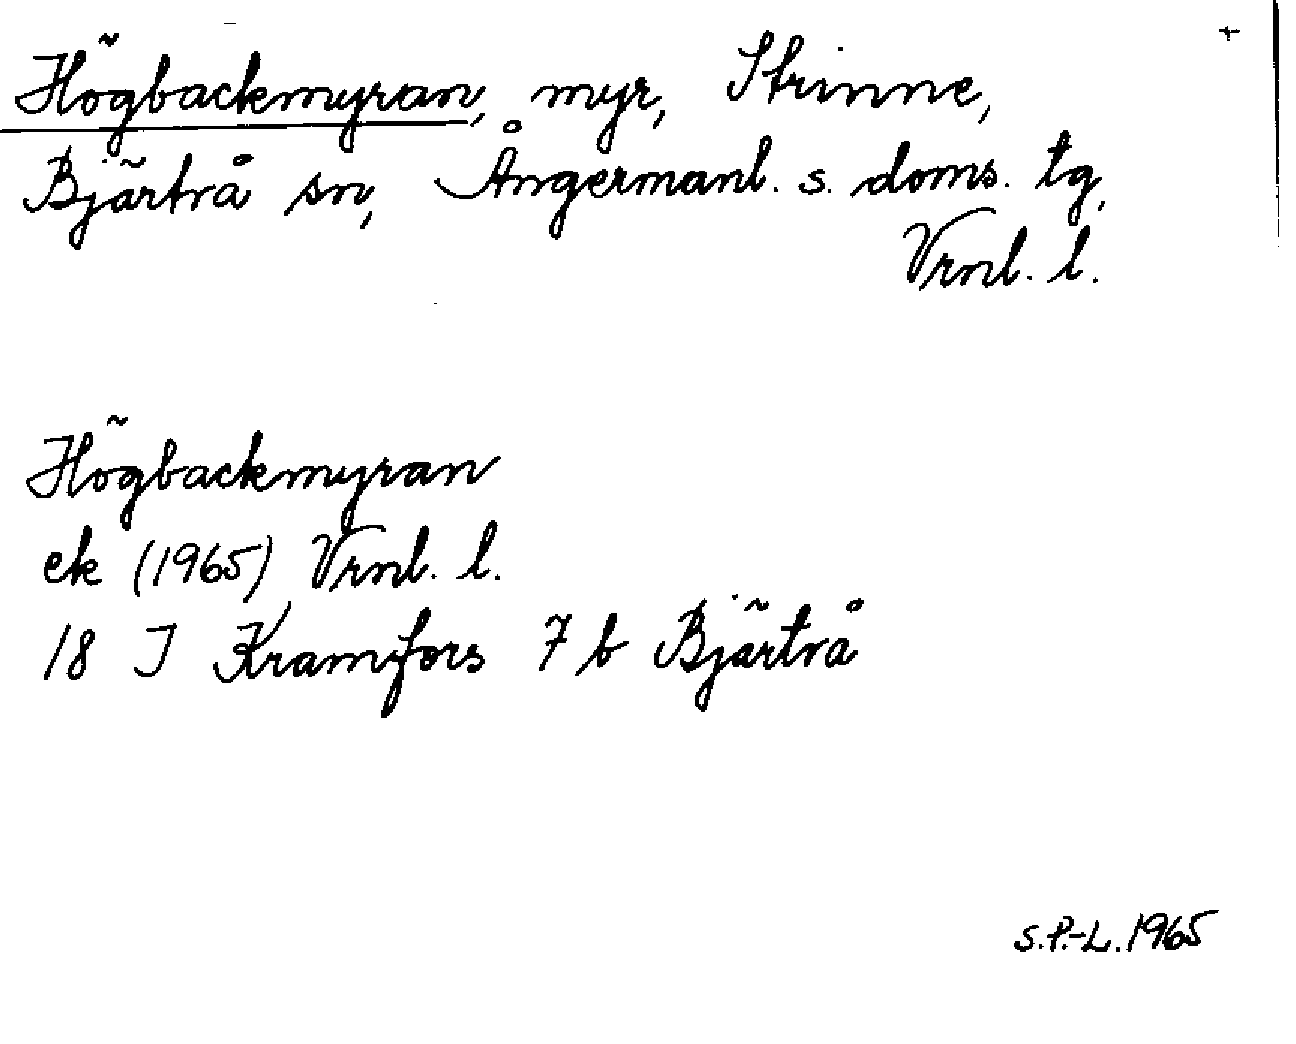 +
Högbackmyran, myr, Strinne,
Bjärtrå sn, Ångermanl. s. doms. tg,
Vrnl. l.
Högbackmyran
ek (1965) Vrnl. l.
18 I Kramfors 7 b Bjärtrå
S.P.-L. 1965